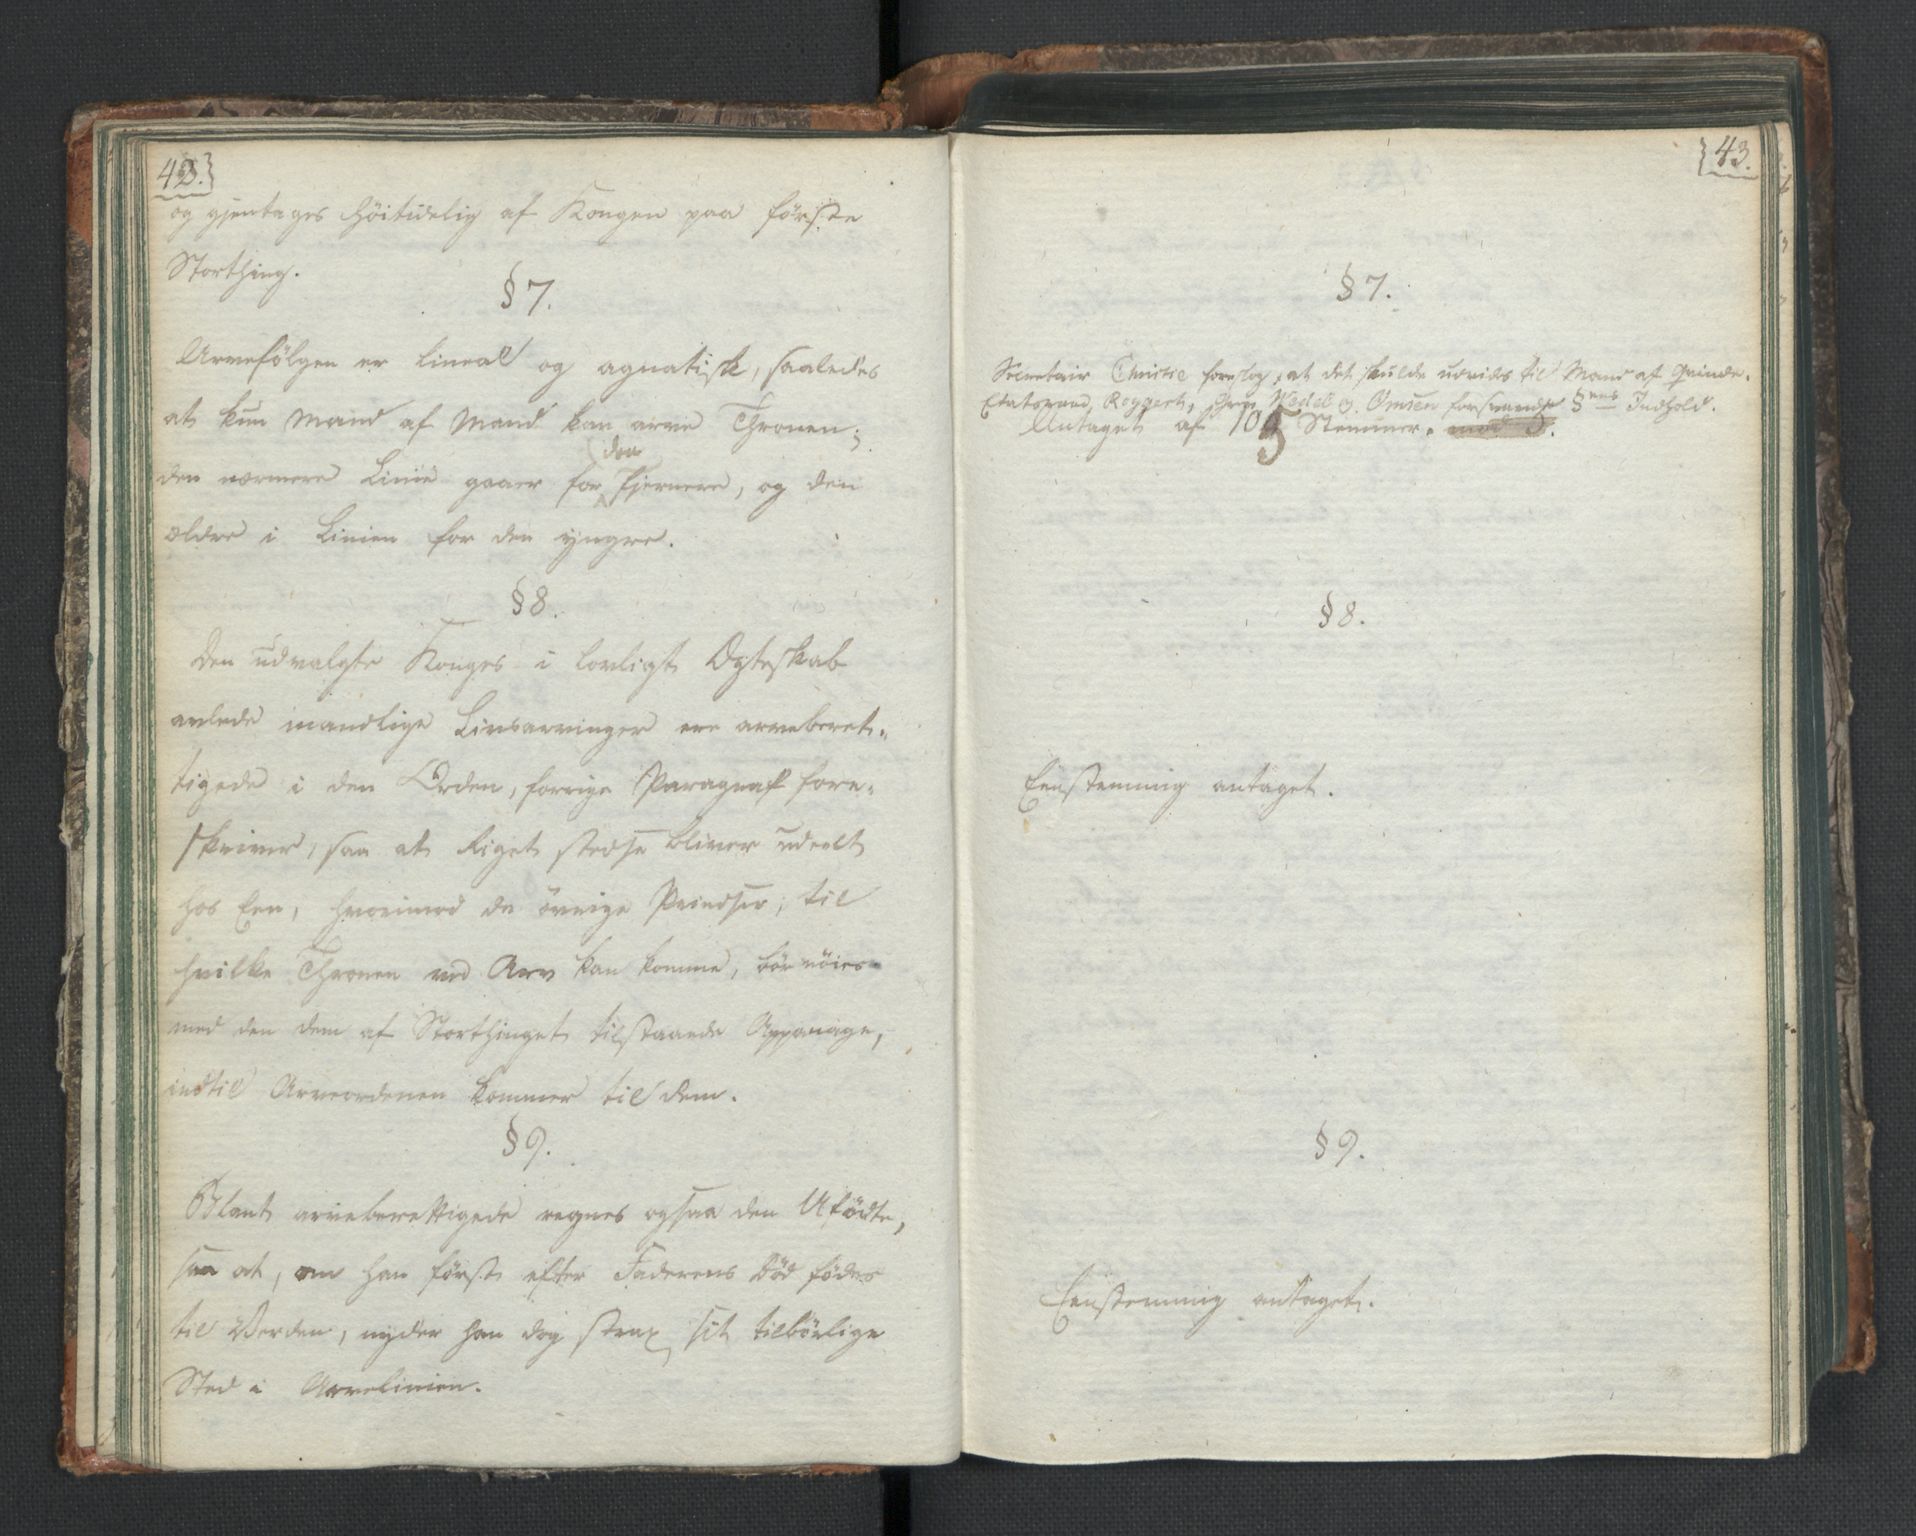 42.
og gjentages höitidelig af Kongen paa første
Storthing.
§ 7.
Arvefölgen er lineal og agnatisk, saaledes
at kun Mand af Mand kan arve Thronen;
den
den nærmere Linie gaaer for fjernere, og den
ældre i Linien for den yngre.
§ 8.
Den udvalgte Konges i lovligt Ægteskab
avlede mandlige Livsarvinger ere arveberet-
tigede i den Orden, forrige Paragraf fore-
skriver, saa at Riget stedse bliver udeelt
hos Een, hvorimod de övrige Prindser, til
hvilke Thronen ved Arv kan komme, bør nöies
med den dem af Storthinget tilstaaede Appanage,
indtil Arveordenen kommer til dem.
§ 9.
Blant arveberettigede regnes ogsaa den Ufödte,
saa at, om han först efter Faderens Död födes
til Verden, nyder han dog strax sit tilbörlige
Sted i Arvelinien.
43.
§ 7.
Secretair Christie foreslog, at det skulde udvides til Mand af Qvinde.
Etatsraad Roggert, Grev Wedel og Omsen forsvarede §ens Indhold.
Antaget af 105 Stemmer. mod 5.
§ 8.
Eenstemmig antaget.
§ 9.
Eenstemmig antaget.